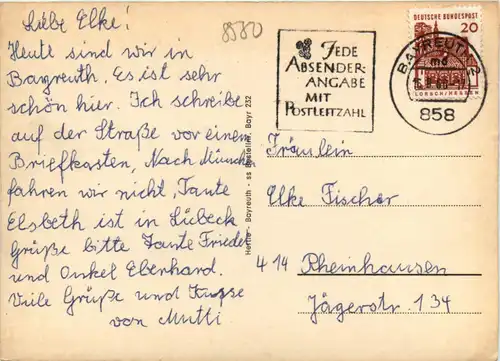 Liebe Elke!
Heute sind wir in
Bayreuth. Es ist sehr
schön hier. Ich schreibe
auf der Straße vor einem
Briefkasten. Nach München
fahren wir nicht, Tante
Elsbeth ist in Lübeck
Grüße bitte Tante Friede
und Onkel Eberhard.
Viele Grüße und Küsse
von Mutti
8580
JEDE
ABSENDER-
ANGABE
MIT
POSTLEITZAHL
DEUTSCHE BUNDESPOST
20
BAYREUTH
md
858
LORSCH/HESSEN
Hertie - Bayreuth - ss Bestellnr. Bayr 232
Fräulein
Elke Fischer
414 Rheinhausen
Jägerstr. 134